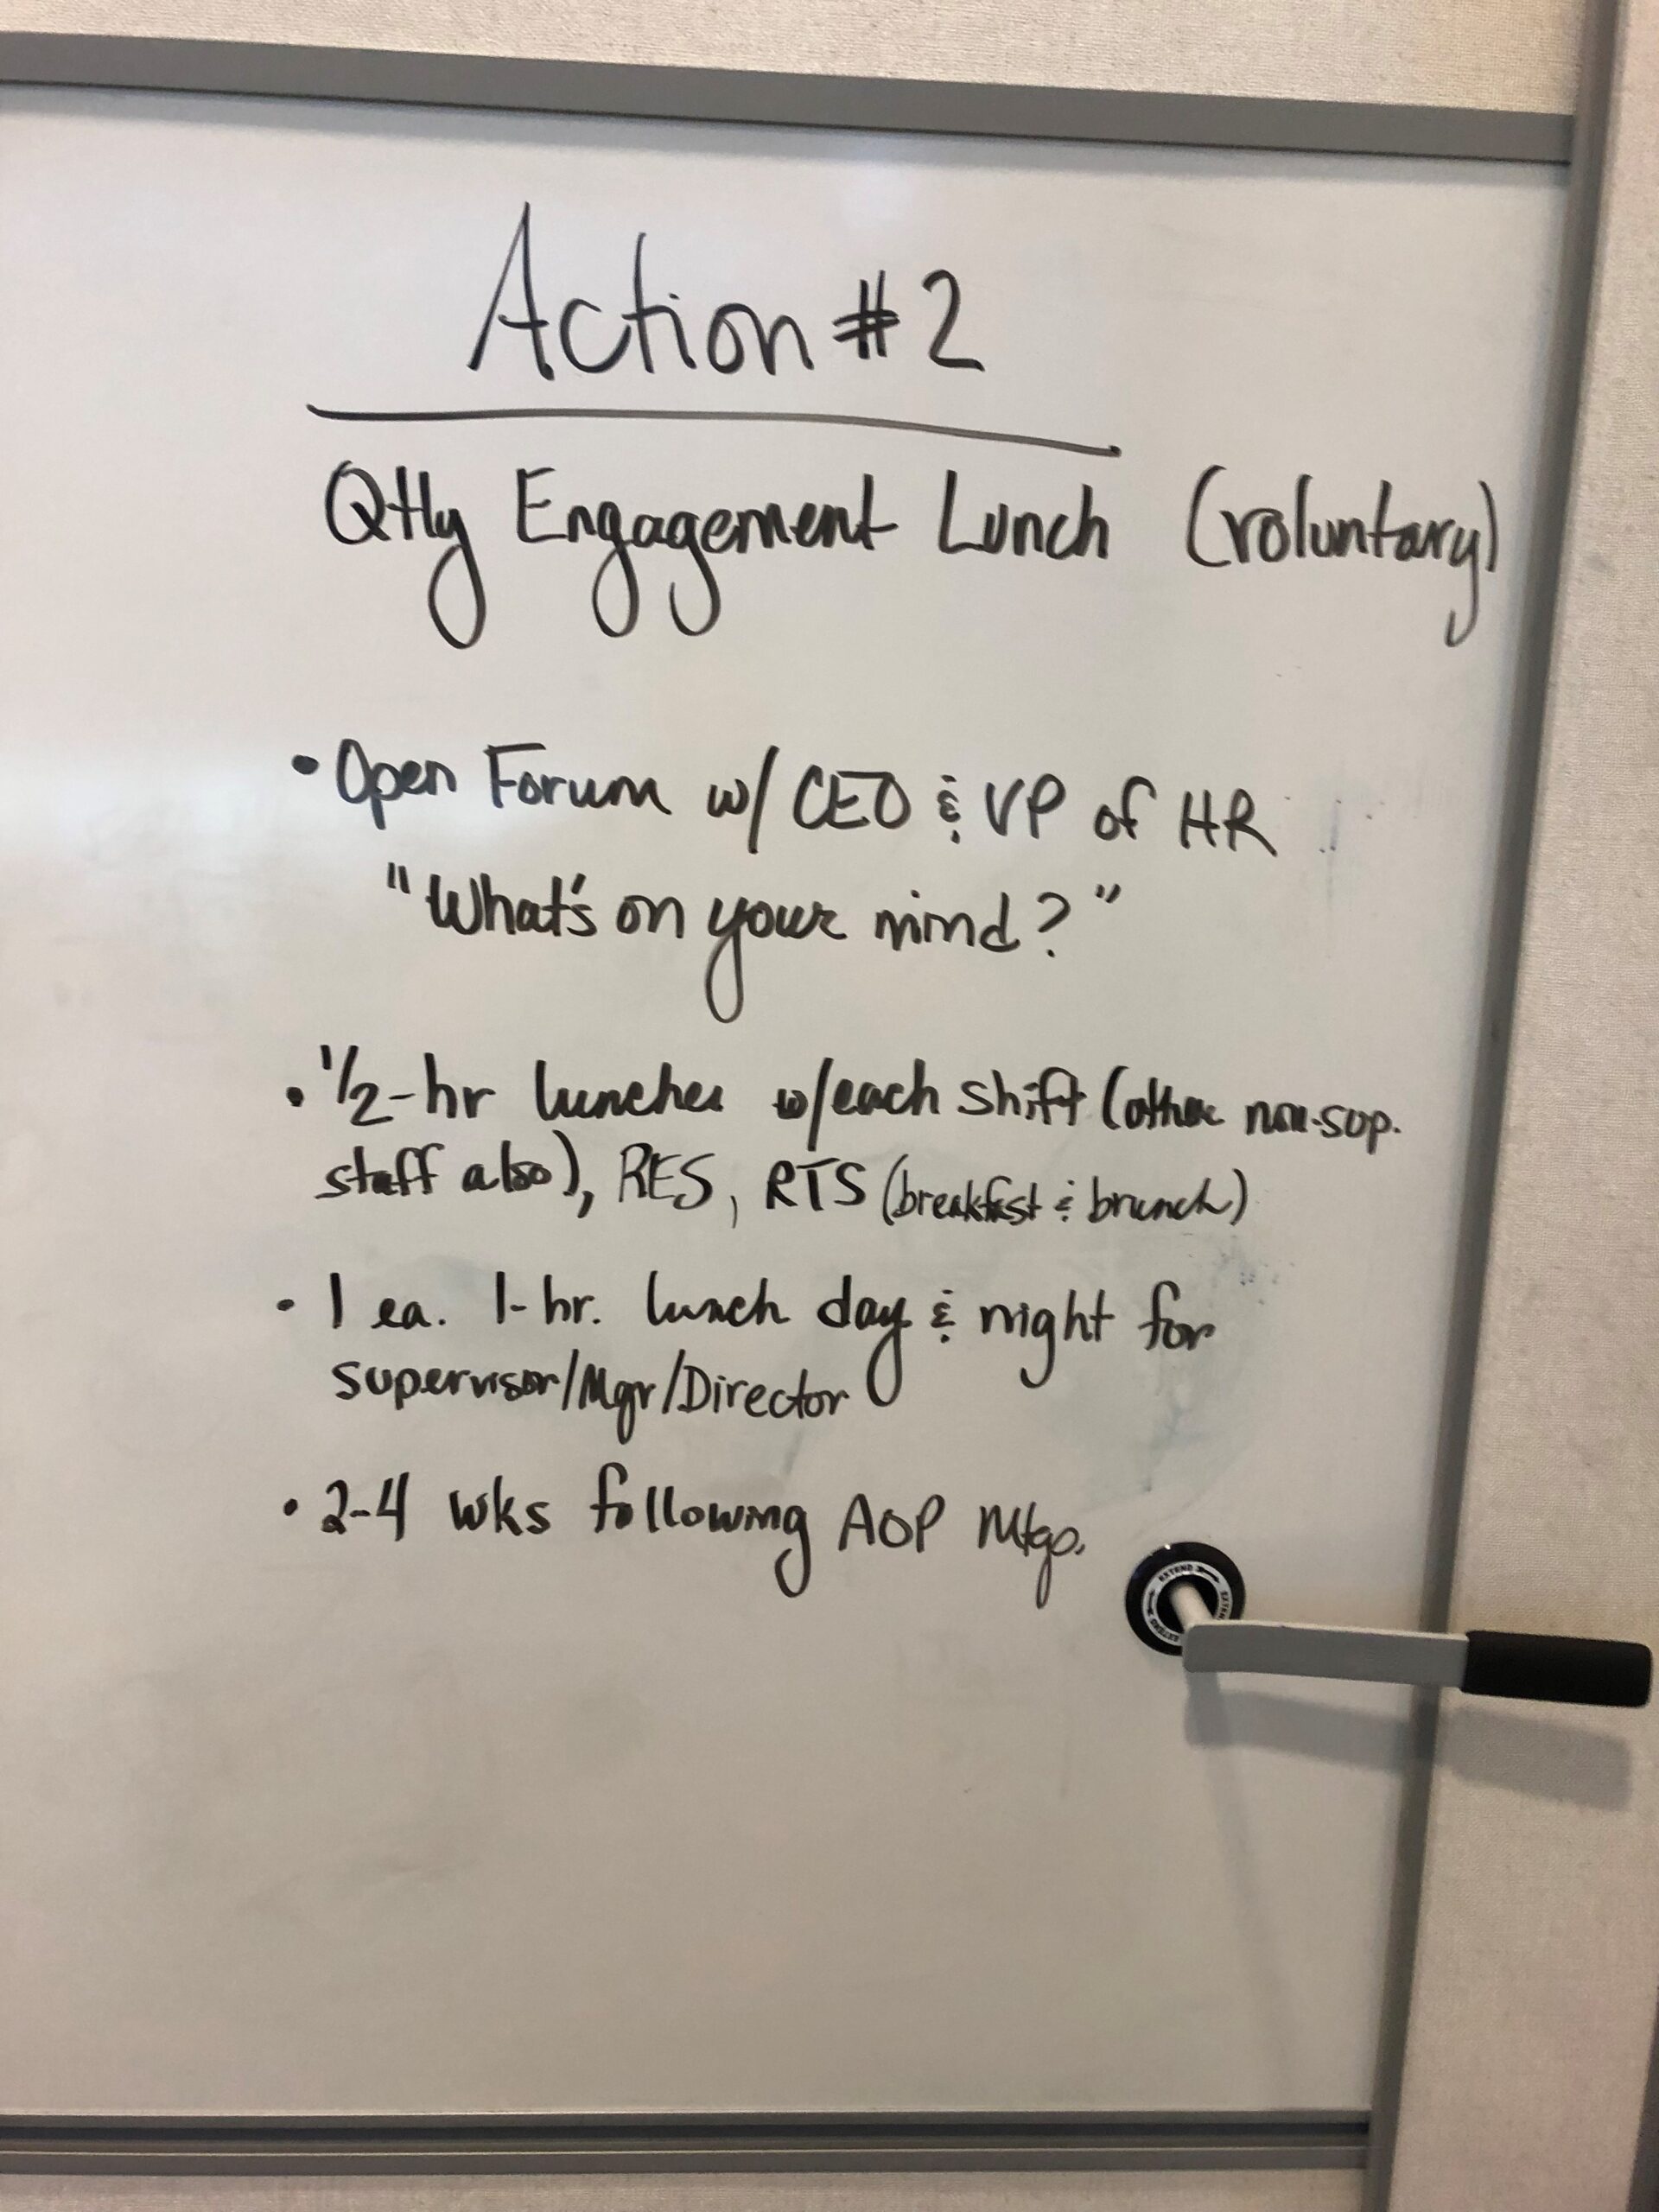 Action #2
Qtly Engagement Lunch (voluntary)
• Open Forum w/ CEO & VP of HR
"What's on your mind?"
• 1/2-hr lunches w/each shift (other non-sup.
staff also), RES, RTS (breakfast & brunch)
• 1 ea. 1-hr. lunch day & night for
supervisor/Mgr/Director
• 2-4 wks following AOP Mtgs.
EXTEND